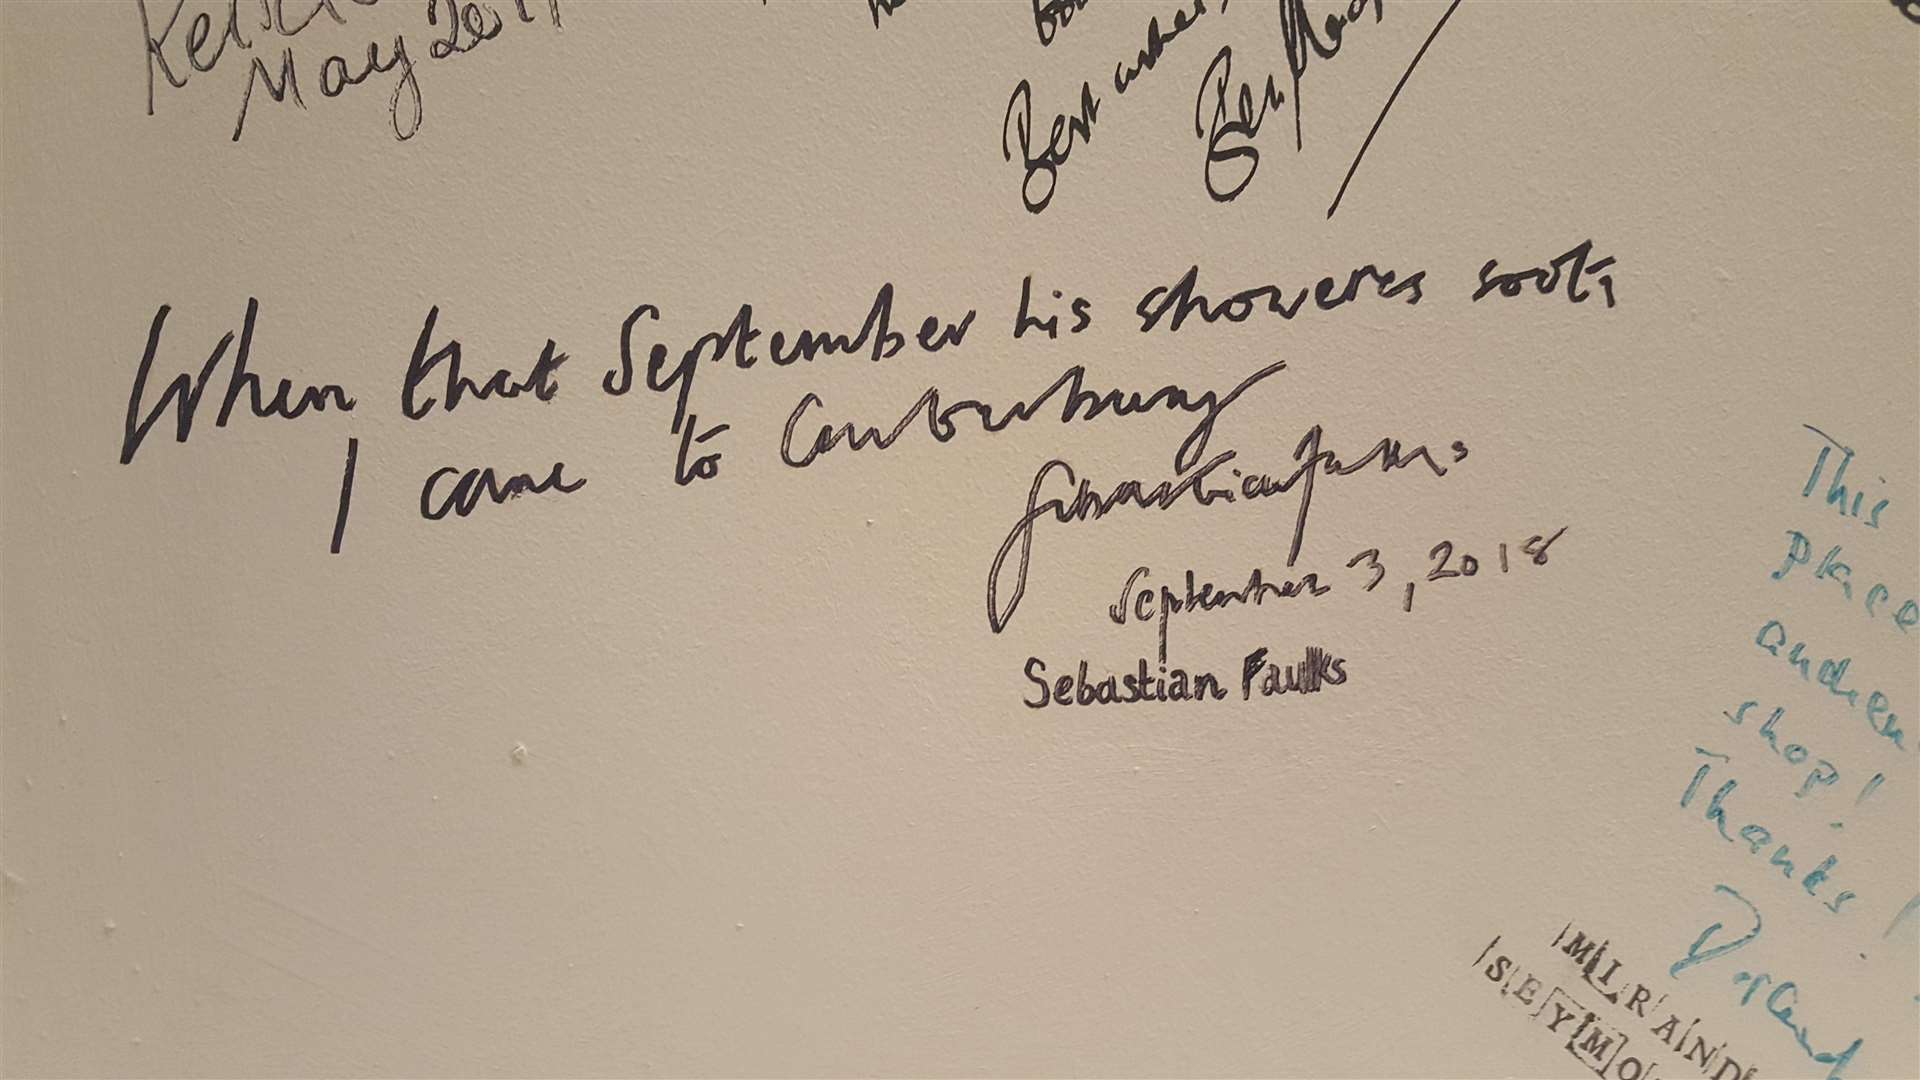 May 20
Best wishes,
Ben
When that September his showeres soote
I came to Canterbury
Sebastian Faulks
September 3, 2018
Sebastian Faulks
This
place
audien
shop!
Thanks
MIRAND
SEYMO